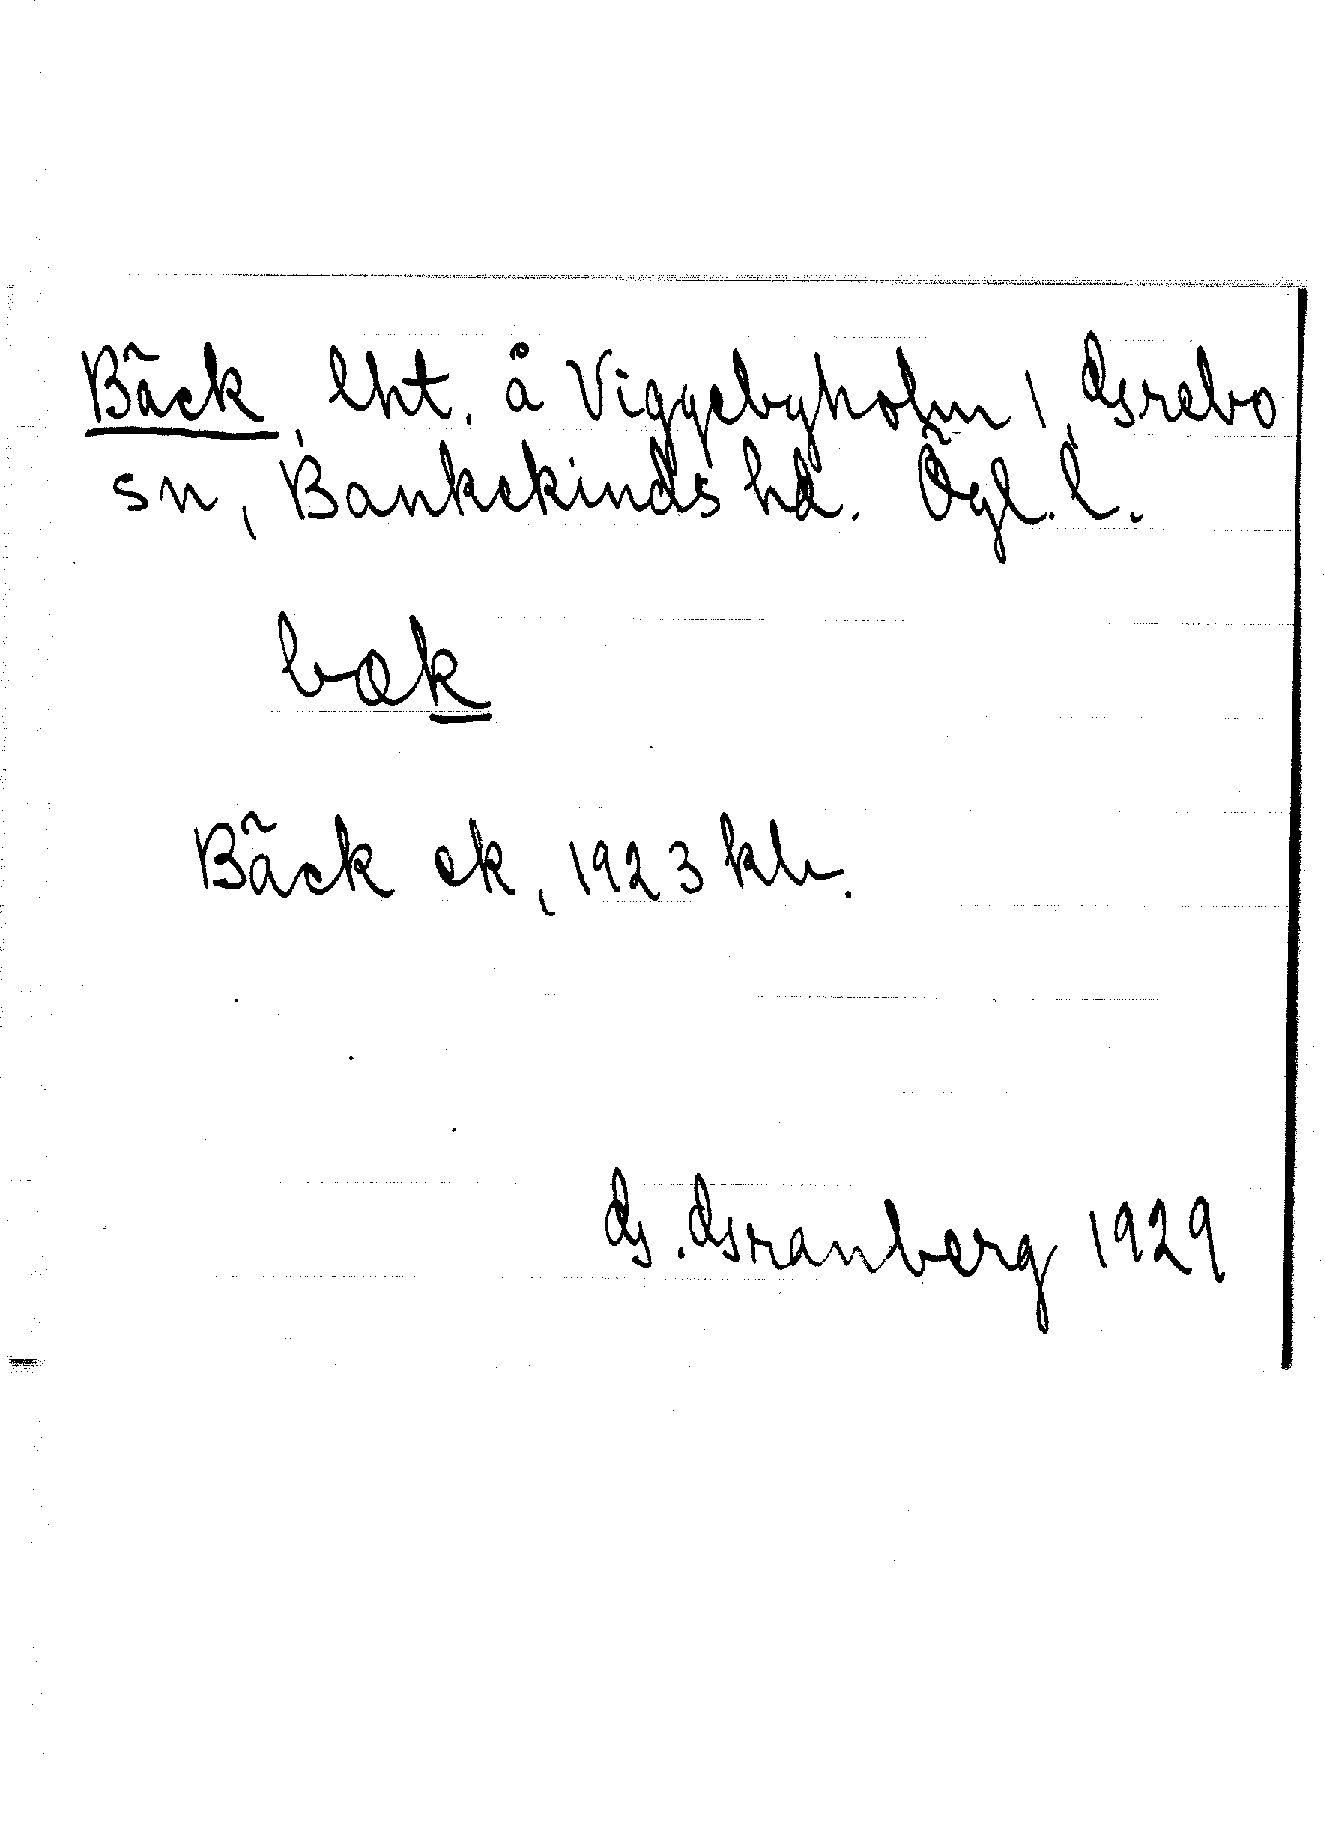 Bäck, lht. å Viggebyholm 1, Grebo
sn, Bankekinds hd. Ögl. l.
bæk
Bäck ek, 1923 kb.
G. Granberg 1929